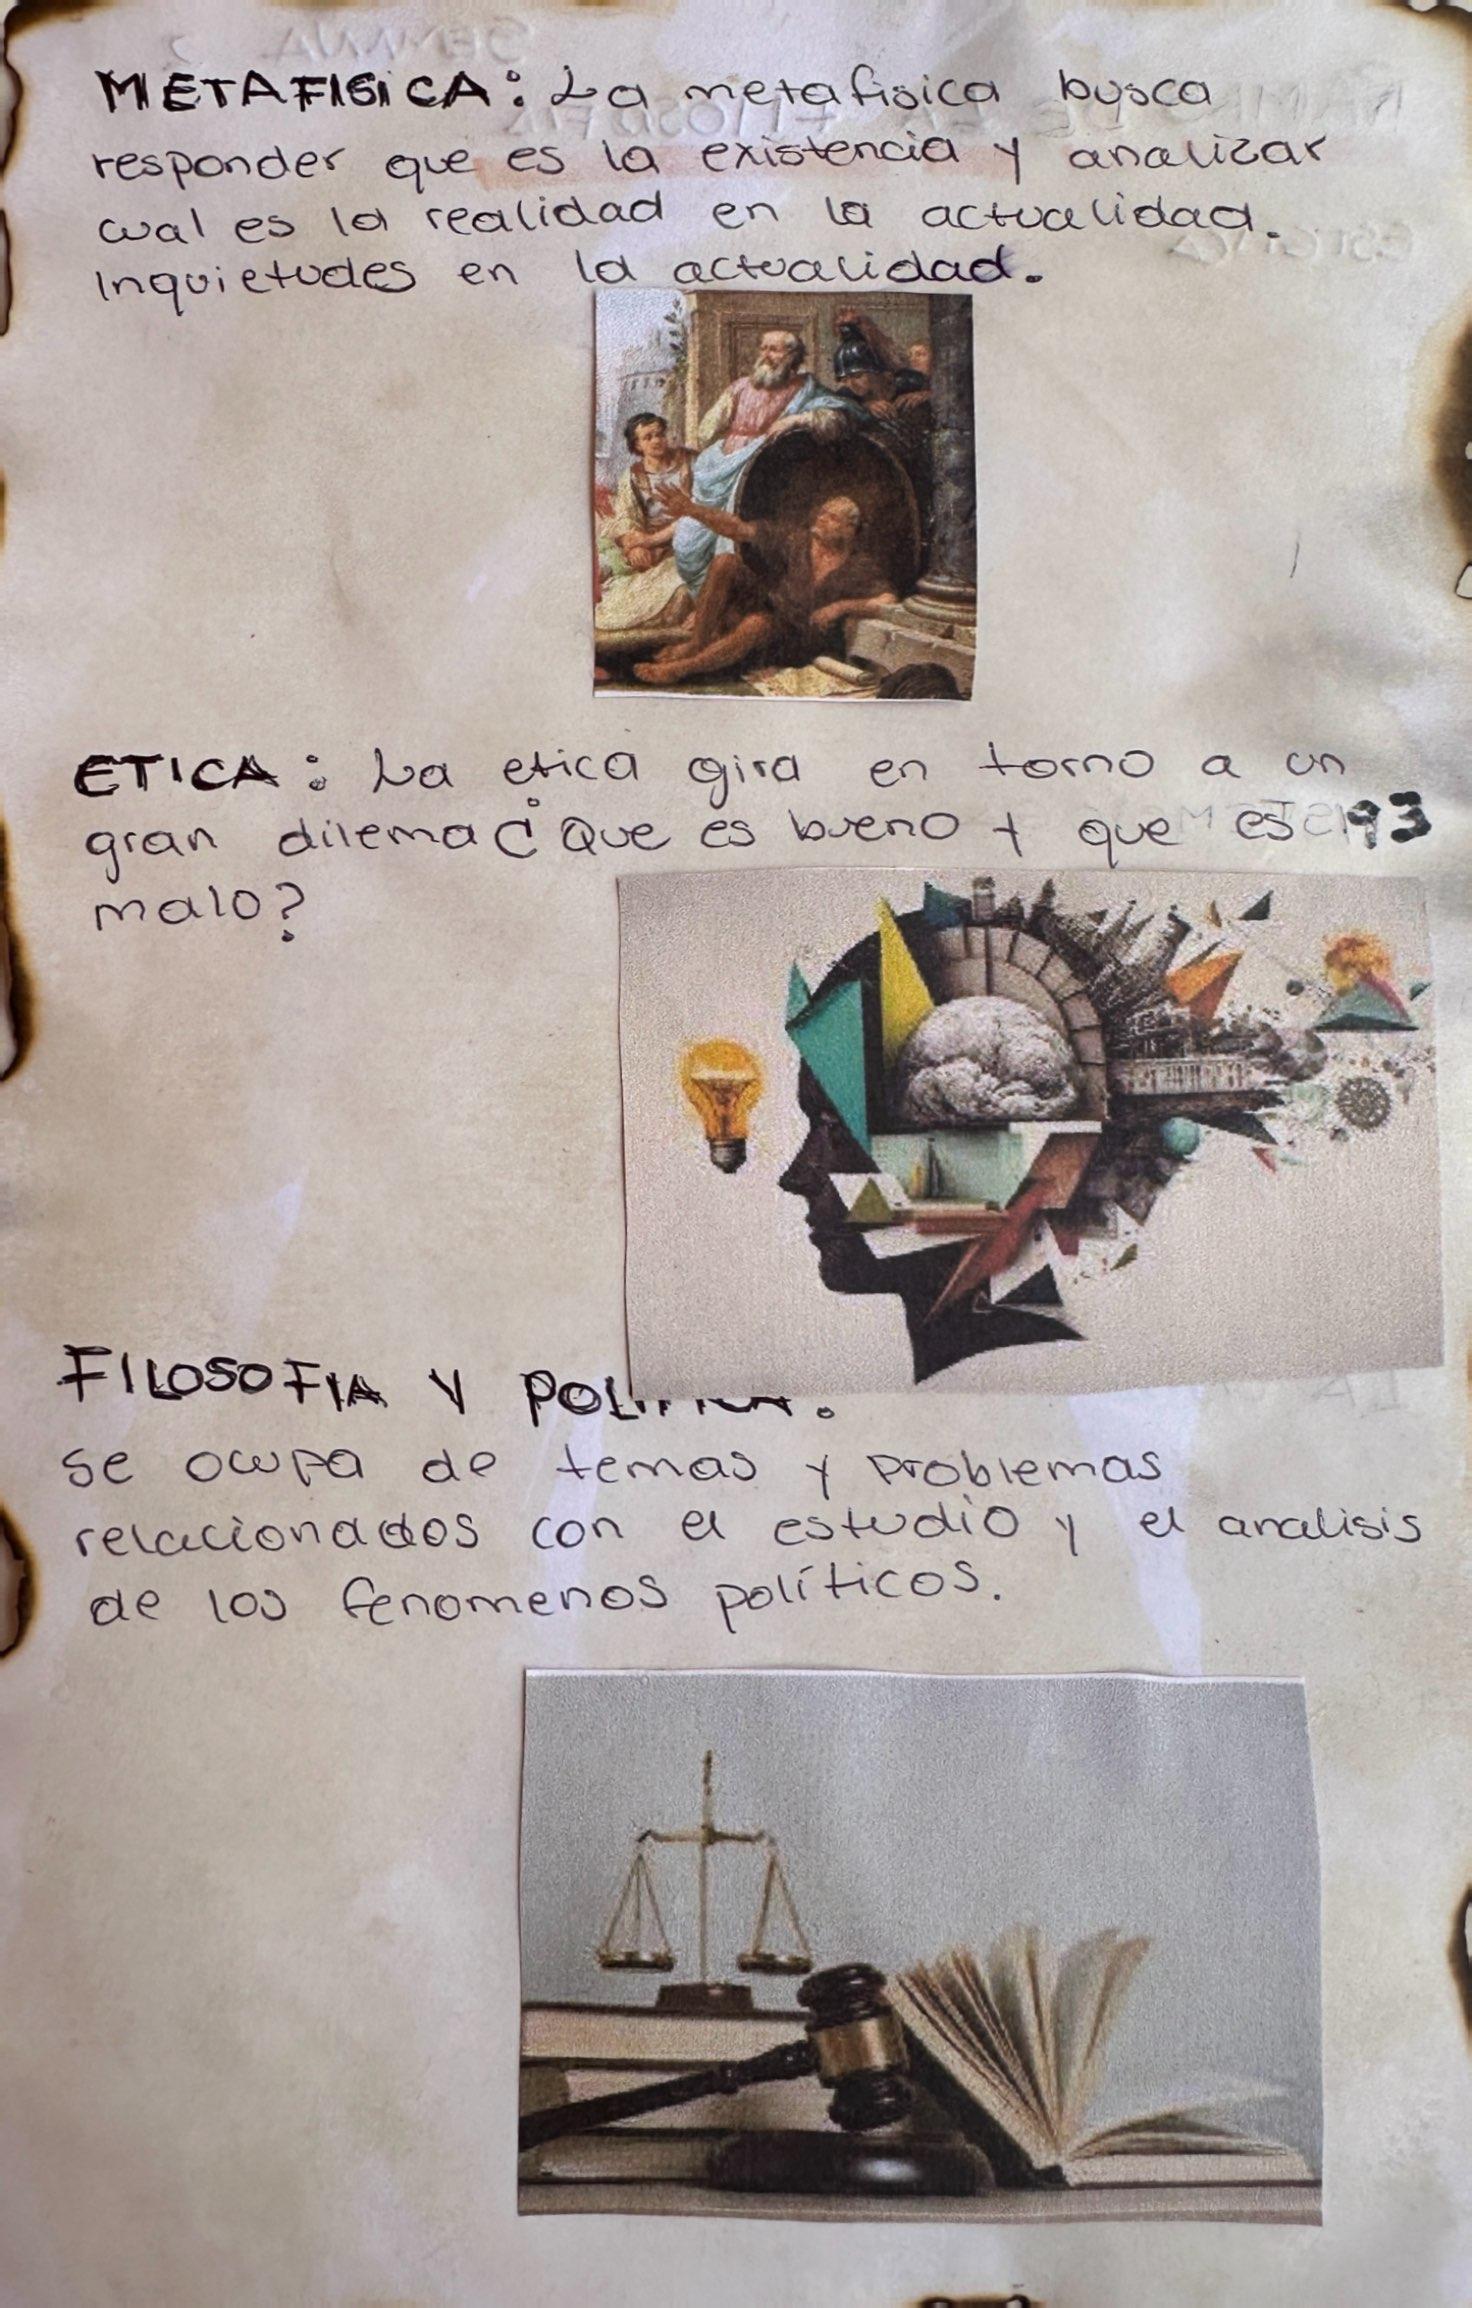 METAFISICA: La metafisica busca
responder que es la existencia y analizar
cual es la realidad en la actualidad.
Inquietudes en la actualidad.
ETICA: La etica gira en torno a un
gran dilema ¿Que es bueno y que es
malo?
FILOSOFIA Y POLITICA.
se ocupa de temas y problemas
relacionados con el estudio y el analisis
de los fenomenos políticos.